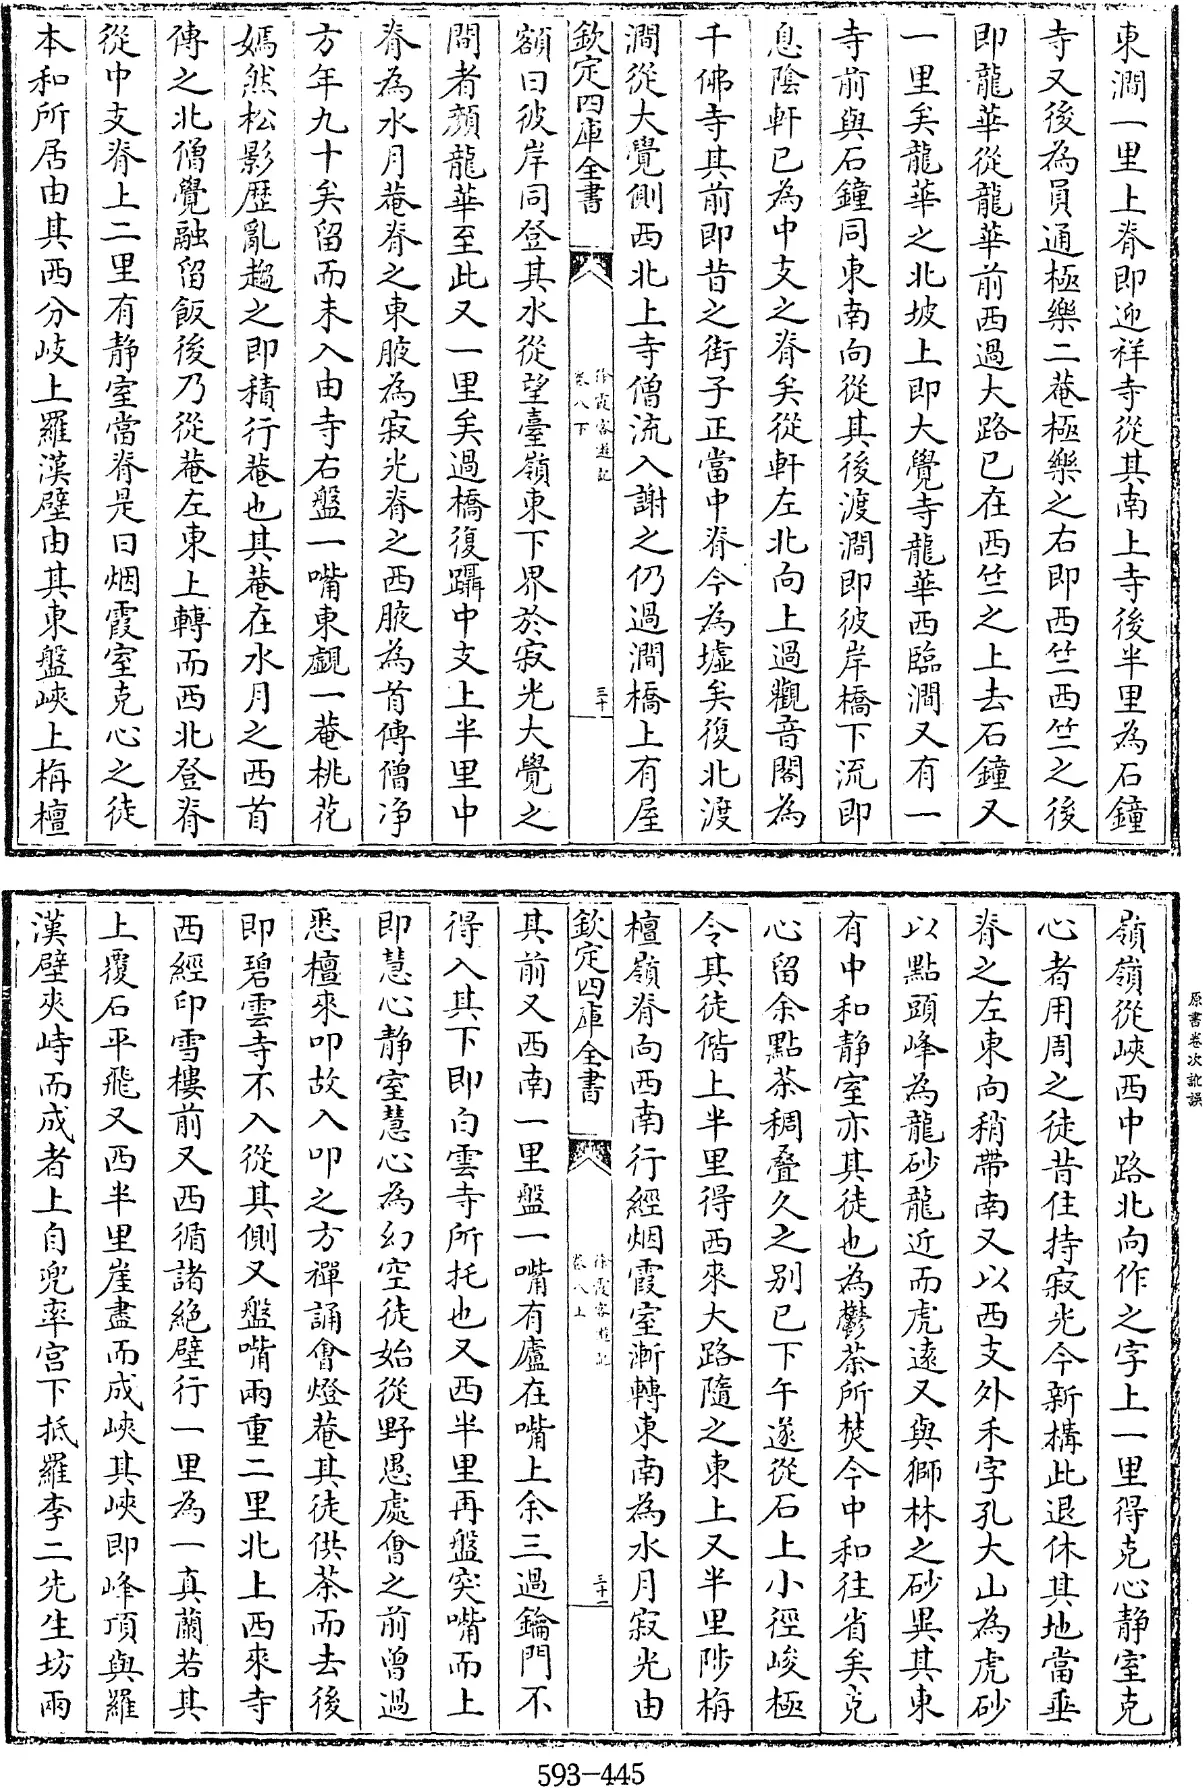 東澗一里上脊即迎祥寺從其南上寺後半里為石鐘
寺又後為員通極樂二菴極樂之右即西竺西竺之後
即龍華從龍華前西過大路已在西竺之上去石鐘又
一里矣龍華之北坡上即大覺寺龍華西臨澗又有一
寺前與石鐘同東南向從其後渡澗即彼岸橋下流即
息陰軒已為中支之脊矣從軒左北向上過觀音閣為
千佛寺其前即昔之街子正當中脊今為墟矣復北渡
澗從大覺側西北上寺僧流入謝之仍過澗橋上有屋
欽定四庫全書
徐霞客遊記
卷八下
三十
額曰彼岸同登其水從望臺嶺東下界於寂光大覺之
間者顏龍華至此又一里矣過橋復躡中支上半里中
脊為水月菴脊之東腋為寂光脊之西腋為首傳僧净
方年九十矣留而未入由寺右盤一嘴東覷一菴桃花
嫣然松影歷亂趨之即積行菴也其菴在水月之西首
傳之北僧覺融留飯後乃從菴左東上轉而西北登脊
從中支脊上二里有静室當脊是曰烟霞室克心之徒
本和所居由其西分岐上羅漢壁由其東盤峽上栴檀
嶺嶺從峽西中路北向作之字上一里得克心静室克
心者用周之徒昔住持寂光今新構此退休其地當垂
脊之左東向稍帶南又以西支外禾字孔大山為虎砂
以點頭峰為龍砂龍近而虎遠又與獅林之砂異其東
有中和静室亦其徒也為鬱荼所焚今中和往省矣克
心留余點茶稠叠久之别已下午遂從石上小徑峻極
令其徒偕上半里得西來大路隨之東上又半里陟栴
檀嶺脊向西南行經烟霞室漸轉東南為水月寂光由
欽定四庫全書
徐霞客遊記
卷八上
三十一
其前又西南一里盤一嘴有廬在嘴上余三過鑰門不
得入其下即白雲寺所托也又西半里再盤突嘴而上
即慧心静室慧心為幻空徒始從野愚處㑹之前曾過
悉檀來叩故入叩之方禪誦㑹燈菴其徒供茶而去後
即碧雲寺不入從其側又盤嘴兩重二里北上西來寺
西經印雪樓前又西循諸絶壁行一里為一真蘭若其
上覆石平飛又西半里崖盡而成峽其峽即峰頂與羅
漢壁夾峙而成者上自兜率宮下抵羅李二先生坊兩
原書卷次訛誤
593-445